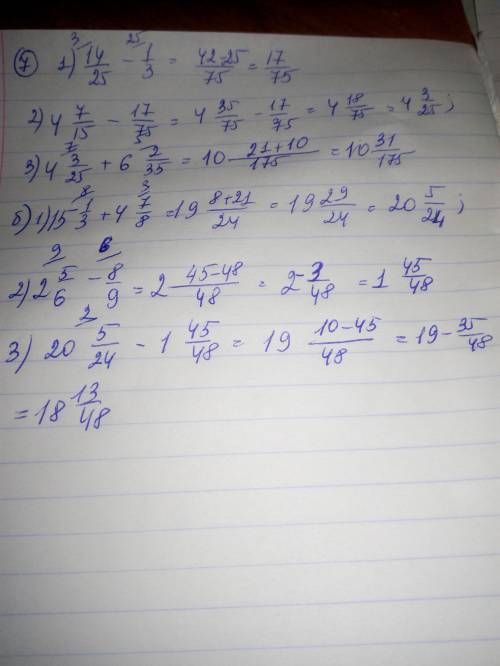 ⑦ 1) 14/25 (3) - 1/3 (25) = 42-25/75 = 17/75
2) 4 7/15 (5) - 17/75 = 4 35/75 - 17/75 = 4 18/75 = 4 3/25;
3) 4 3/25 (7) + 6 2/35 = 10 21+10/175 = 10 31/175
б) 1) 15 1/3 (8) + 4 7/8 (3) = 19 8+21/24 = 19 29/24 = 20 5/24;
2) 2 5/6 (9) - 8/9 (6) = 2 45-48/48 = 2 3/48 = 1 45/48
3) 20 5/24 (2) - 1 45/48 = 19 10-45/48 = 19 - 35/48
= 18 13/48